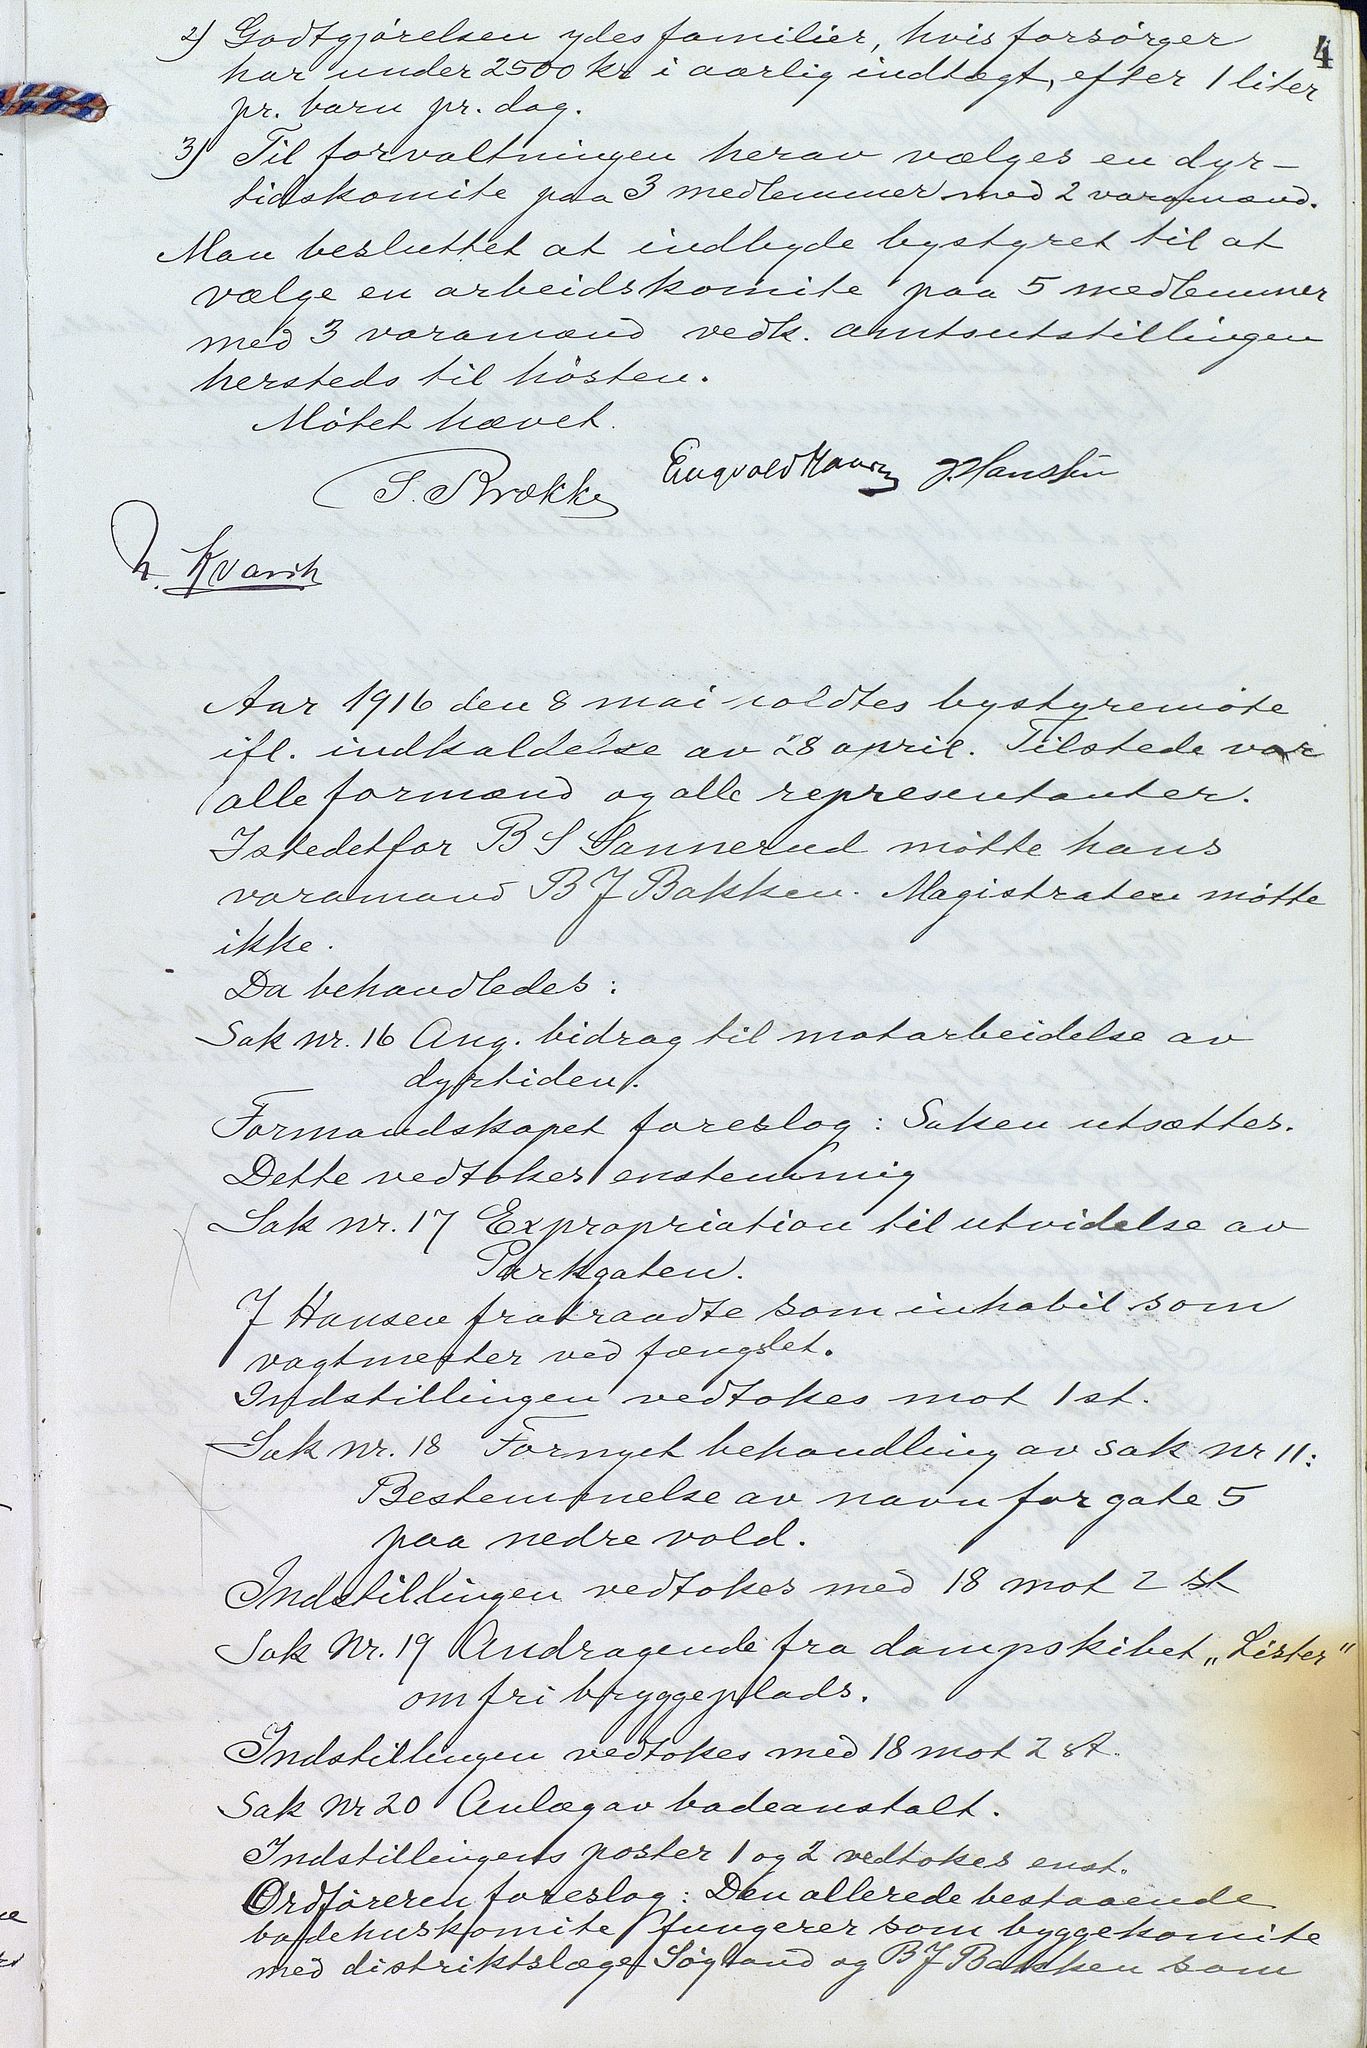 4
2) Godtgjørelsen ydes familier, hvis forsørger
har under 2500 kr i aarlig indtægt, efter 1 liter
pr. barn pr. dag.
3) Til forvaltningen herav vælges en dyr-
tidskomite paa 3 medlemmer med 2 varamænd.
Man besluttet at indbyde bystyret til at
vælge en arbeidskomite paa 5 medlemmer
med 3 varamænd vedk. amtsutstillingen
hersteds til høsten.
Møtet hævet.
S. Brække Engvald Hansen J. Hansen
Kvarik
Aar 1916 den 8 mai holdtes bystyremøte
ifl. indkaldelse av 28 april. Tilstede var
alle formænd og alle representanter.
Istedetfor B S Sannerud møtte hans
varamand B J Bakken. Magistraten møtte
ikke.
Da behandledes:
Sak nr. 16 Ang. bidrag til motarbeidelse av
dyrtiden.
Formandskapet foreslog: Saken utsættes.
Dette vedtokes enstemmig
Sak nr. 17 Expropriation til utvidelse av
Parkgaten.
J Hansen fratraadte som inhabil som
vagtmester ved fængslet.
Indstillingen vedtokes mot 1 st.
Sak nr. 18 Fornyet behandling av sak nr 11:
Bestemmelse av navn for gate 5
paa nedre vold.
Indstillingen vedtokes med 18 mot 2 st
Sak Nr. 19 Andragende fra dampskibet „Lister"
om fri bryggeplads.
Indstillingen vedtokes med 18 mot 2 st.
Sak Nr 20 Anlæg av badeanstalt.
Indstillingens poster 1 og 2 vedtokes enst.
Ordføreren foreslog: Den allerede bestaaende
badehuskomite fungerer som byggekomite
med distriktslæge Søgland og B J Bakken som